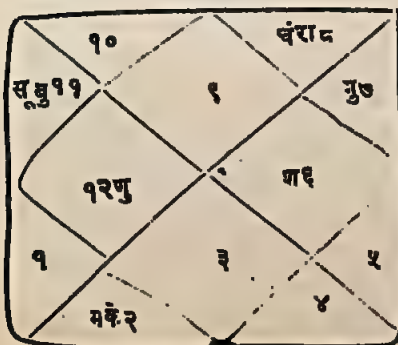 १० चंरा८
सूबु११ ९ गु७
१२शु श६
१ ३ ५
मके२ ४